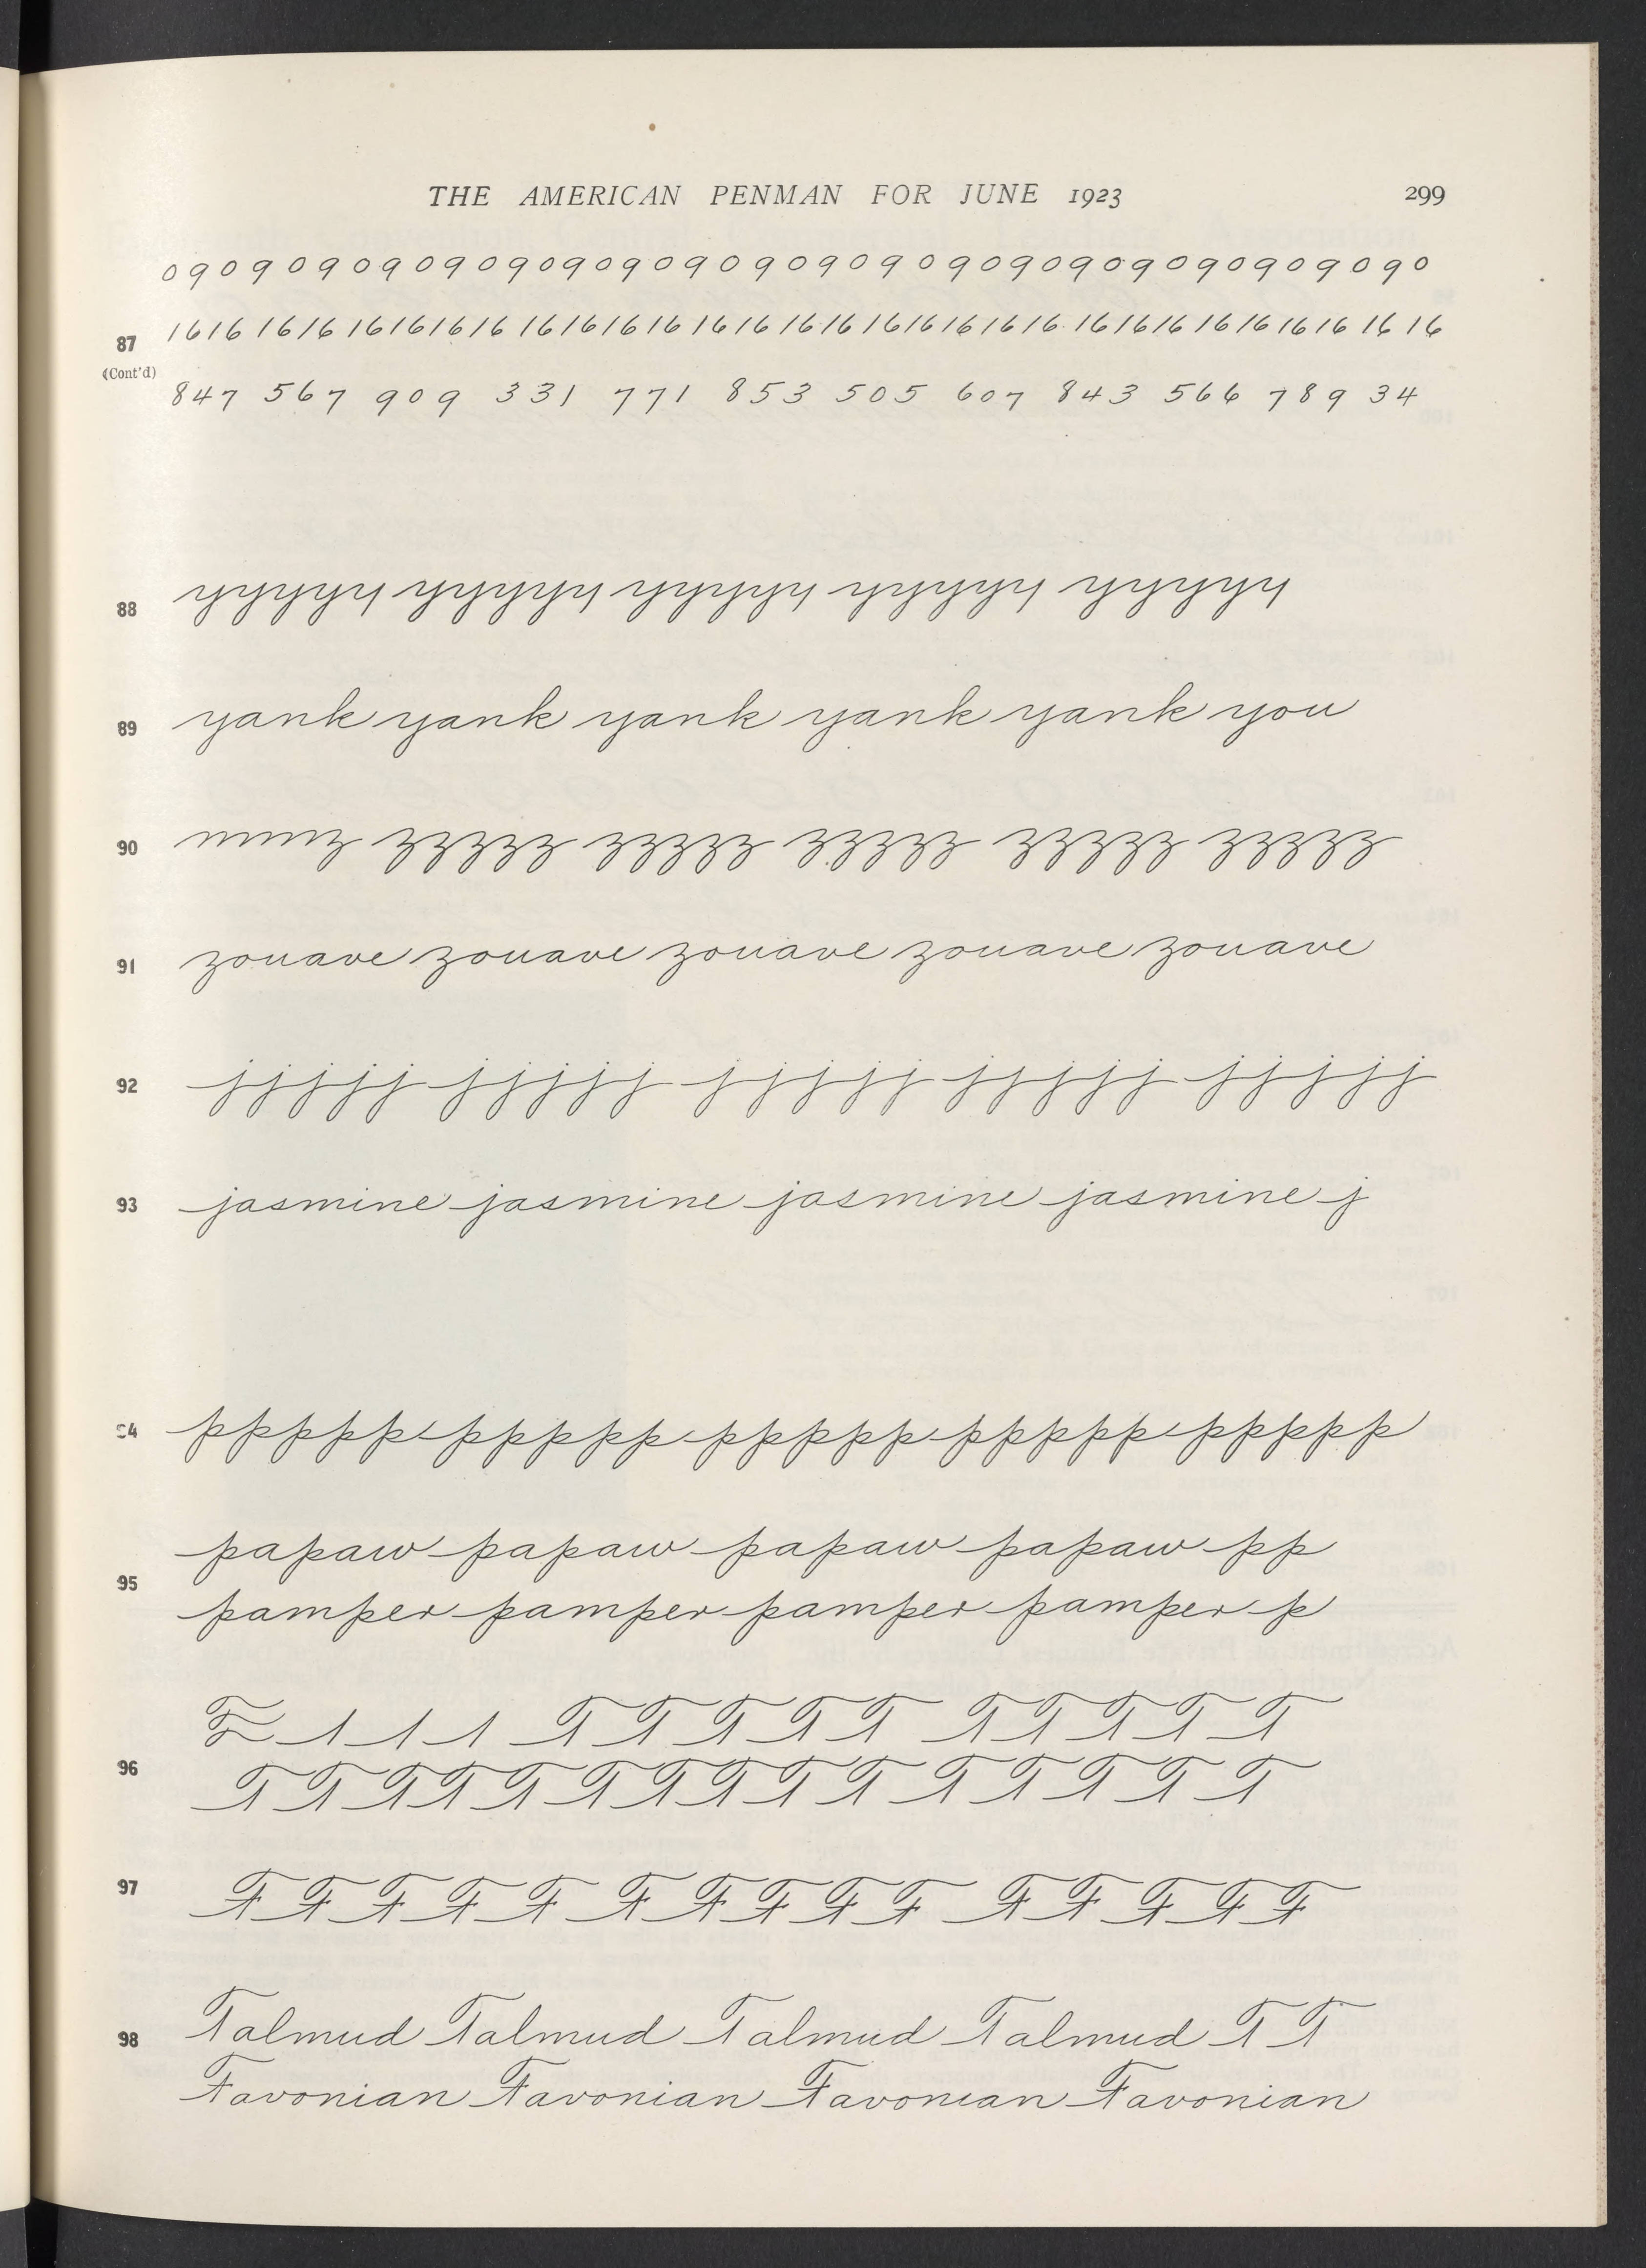 THE AMERICAN PENMAN FOR JUNE 1923 299
0 9 0 9 0 9 0 9 0 9 0 9 0 9 0 9 0 9 0 9 0 9 0 9 0 9 0 9 0 9 0 9 0 9 0 9 0 9 0 9 0
87 1616 1616 16161616 16161616 1616 1616 1616161616 161616 16161616 16 16
(Cont'd)
847 567 909 331 771 853 505 607 843 566 789 34
88 yyyyy yyyyy yyyyy yyyyy yyyyy
89 yank yank yank yank yank you
90 mmz zzzzz zzzzz zzzzz zzzzz zzzzz
91 zouave zouave zouave zouave zouave
92 jjjjj jjjjj jjjjj jjjjj jjjjj
93 jasmine jasmine jasmine jasmine j
94 ppppp ppppp ppppp ppppp ppppp
papaw papaw papaw papaw pp
95
pamper pamper pamper pamper p
T T T T T T T T T T
96
T T T T T T T T T T T T T T T
97 F F F F F F F F F F F F F F F
98 Talmud Talmud Talmud Talmud T T
Favonian Favonian Favonian Favonian